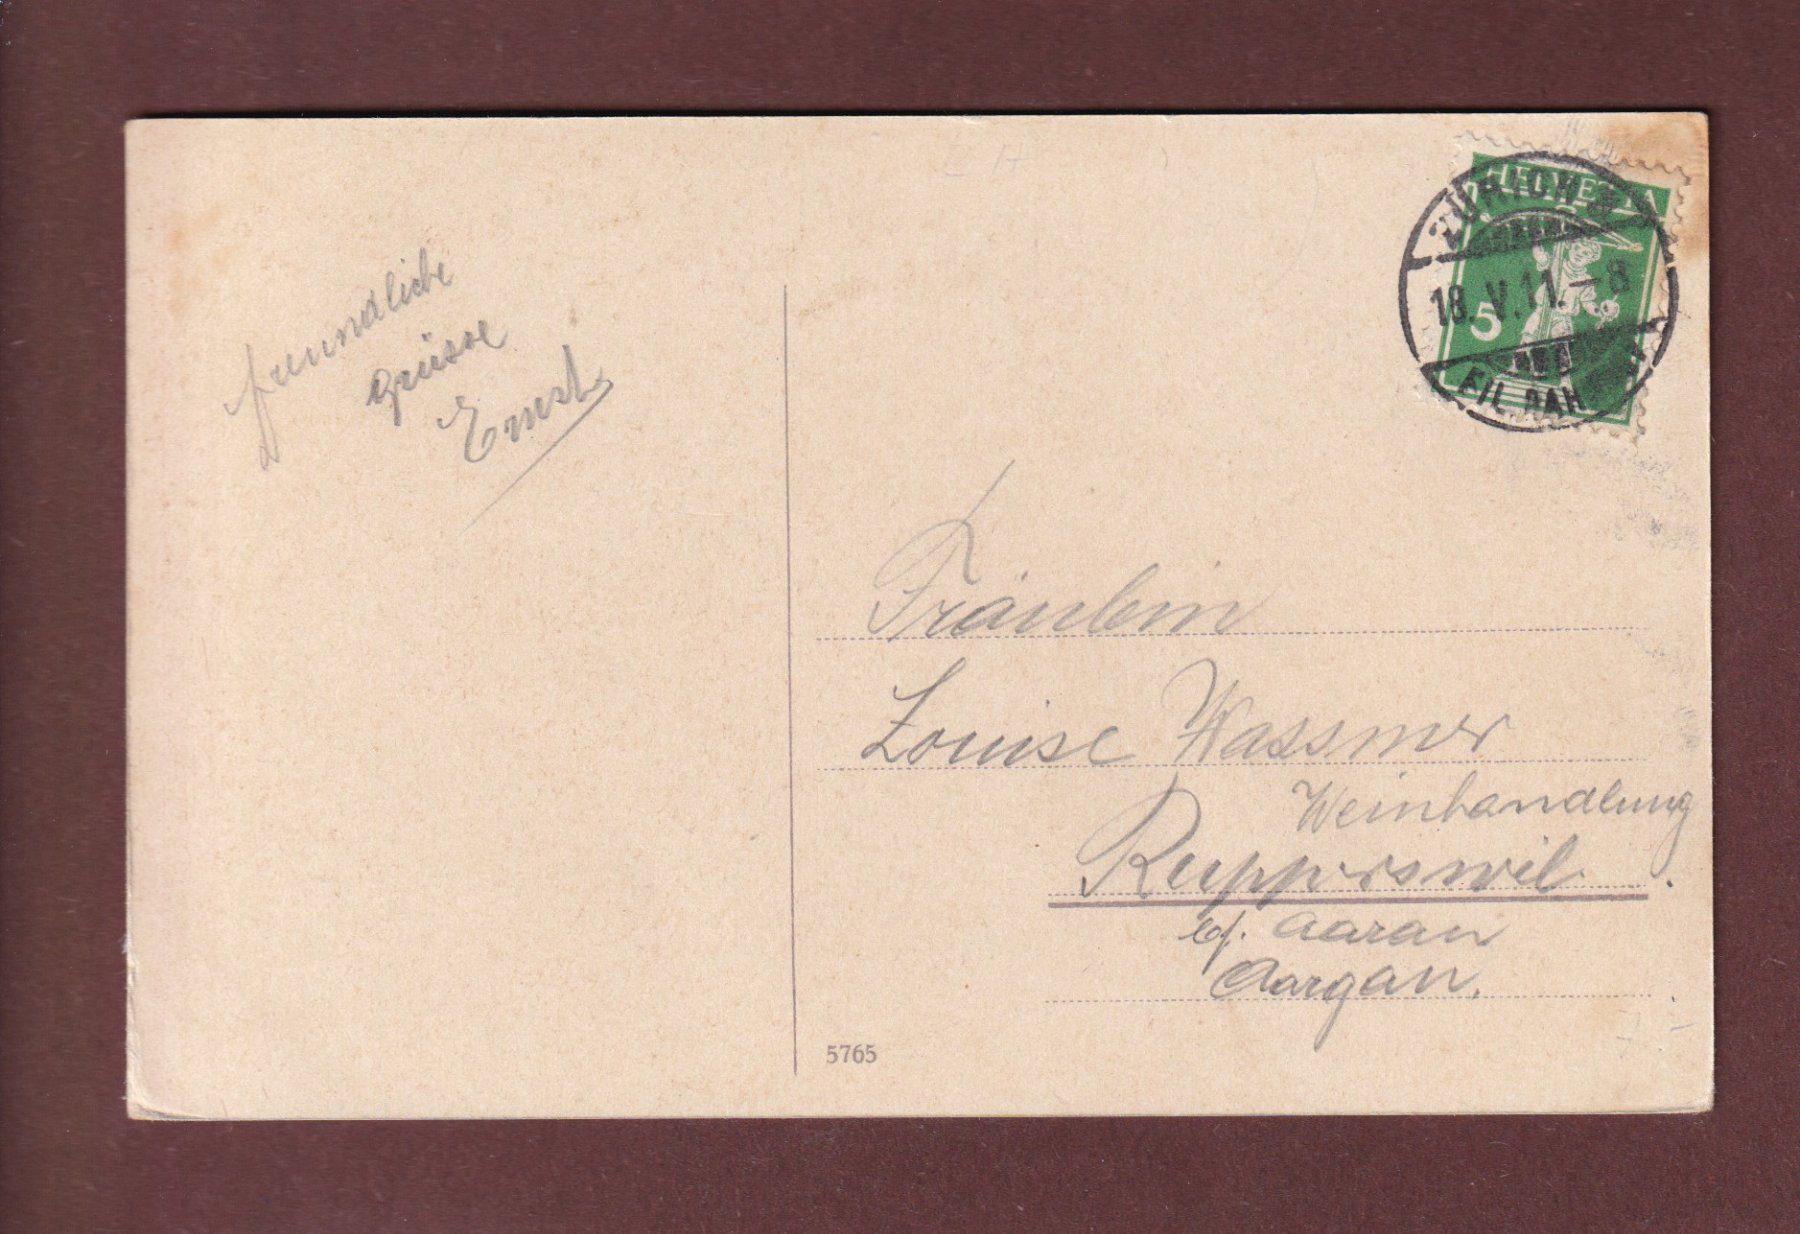 freundliche
Grüsse
Ernst
HELVETIA
5
ZÜRICH
18.V.11.-8
FIL. BAH
Fräulein
Louise Wassmer
Weinhandlung
Rupperswil.
b/. Aarau
Aargau.
5765